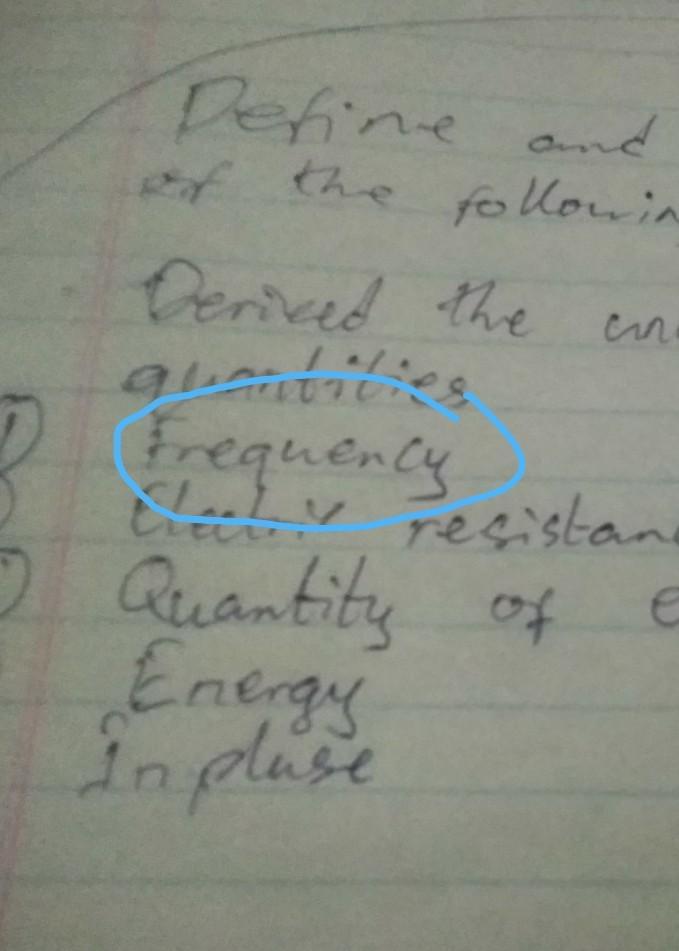 Define and
of the following
Derived the
quantities
Frequency
Electric resistan
Quantity of e
Energy
Inpluse